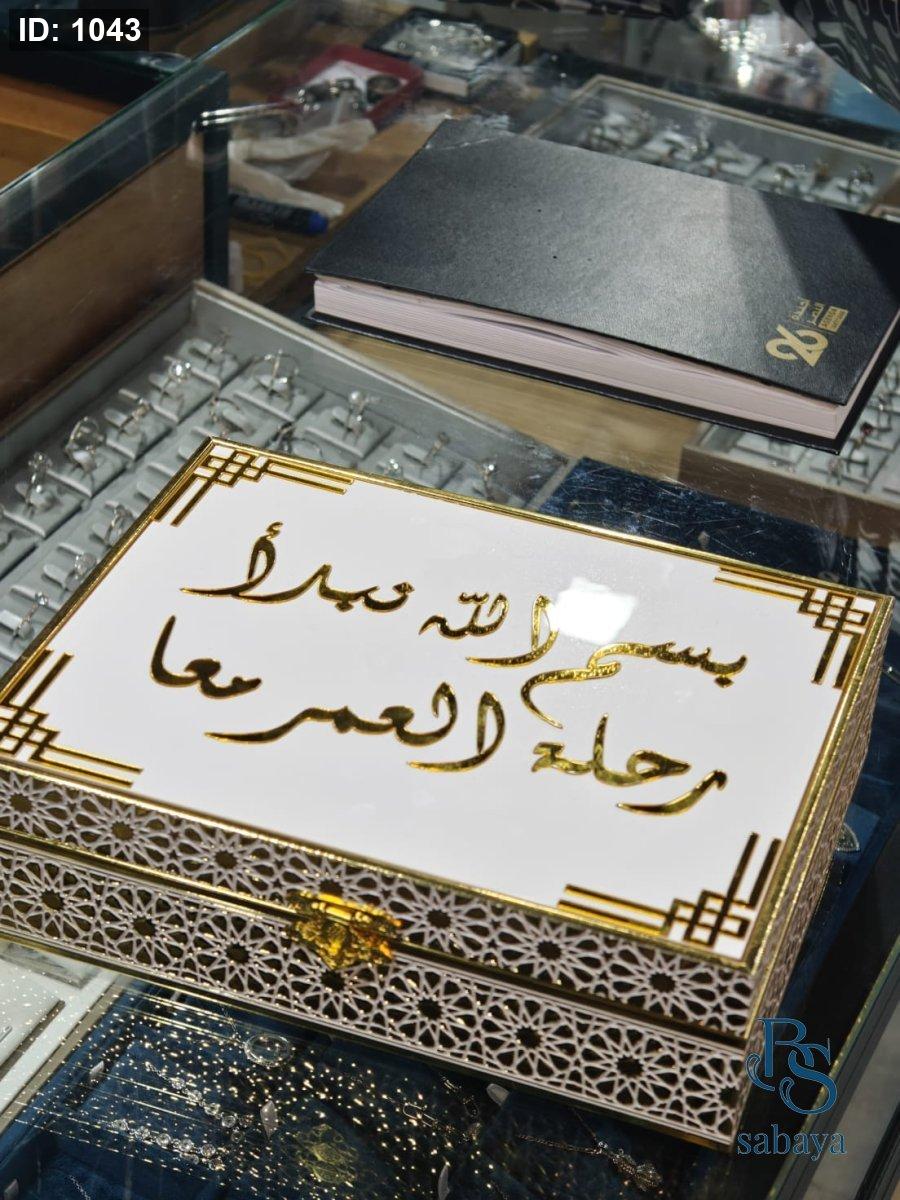 ID: 1043
26
بسم الله نبدأ
رحلة العمر معا
RS
sabaya